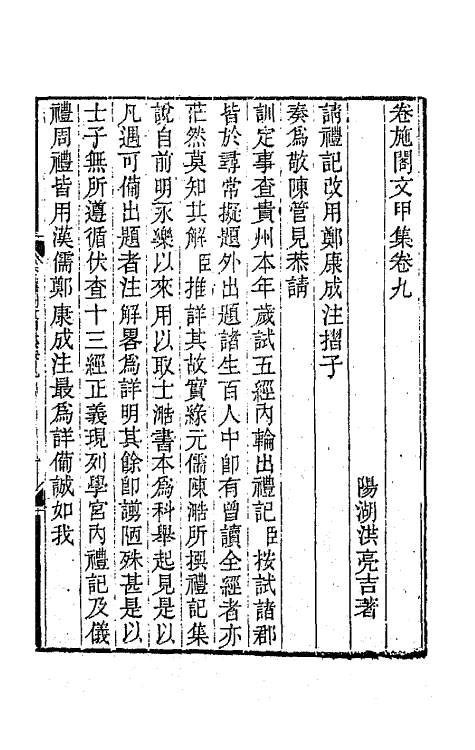 卷施閣文甲集卷九
陽湖洪亮吉著
請禮記改用鄭康成注摺子
奏爲敬陳管見恭請
訓定事查貴州本年歲試五經内輪出禮記臣按試諸郡
皆於尋常擬題外出題諸生百人中卽有曾讀全經者亦
茫然莫知其解臣推詳其故實緣元儒陳澔所撰禮記集
說自前明永樂以來用以取士澔書本爲科舉起見是以
凡遇可備出題者注解畧爲詳明其餘卽謭陋殊甚是以
士子無所遵循伏查十三經正義現列學宮内禮記及儀
禮周禮皆用漢儒鄭康成注最爲詳備誠如我